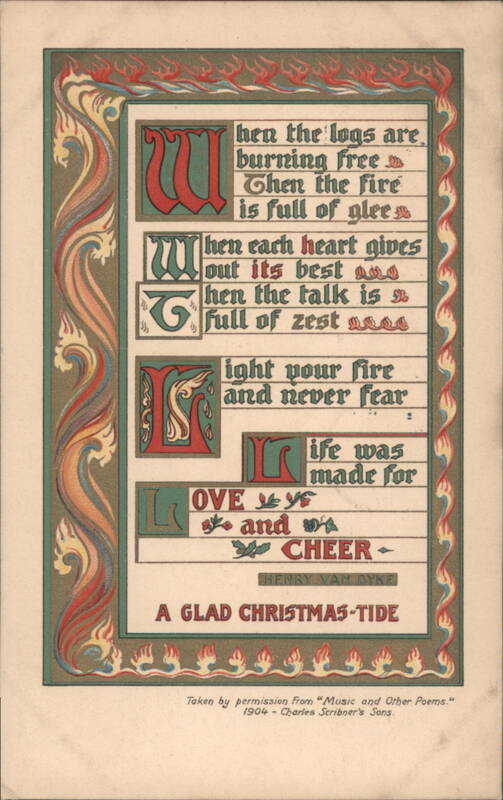 When the logs are
burning free
Then the fire
is full of glee
When each heart gives
out its best
Then the talk is
full of zest
Light your fire
and never fear
Life was
made for
LOVE
and
CHEER
HENRY VAN DYKE
A GLAD CHRISTMAS-TIDE
Taken by permission from "Music and Other Poems."
1904 - Charles Scribner's Sons.